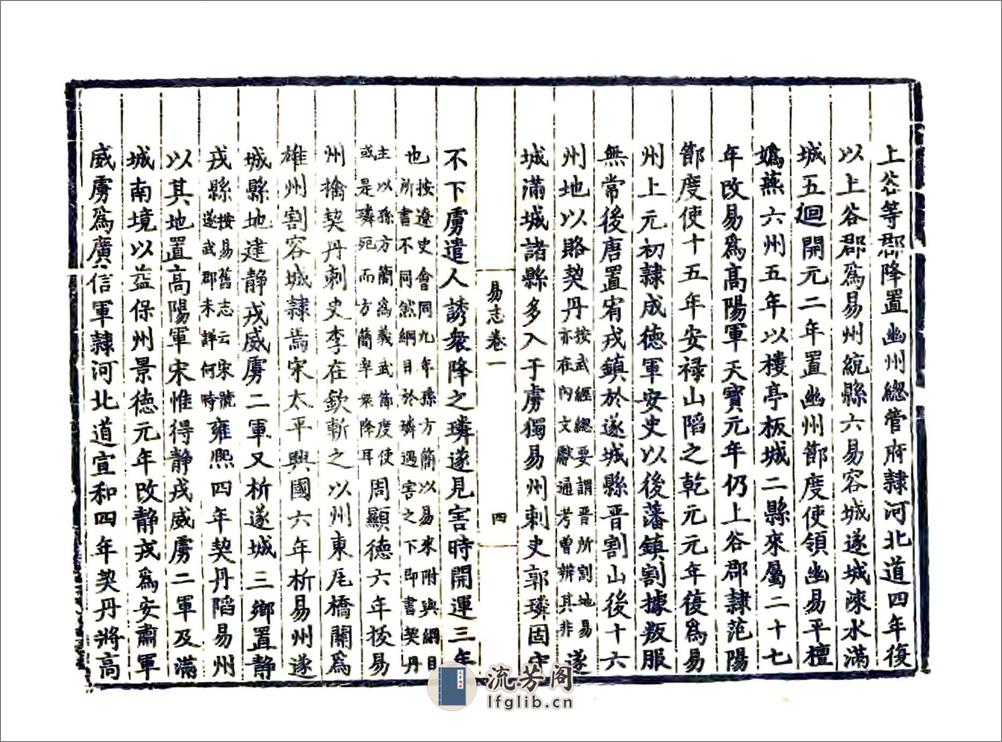 上谷等郡降置幽州總管府隷河北道四年復
以上谷郡爲易州統縣六易容城遂城淶水滿
城五迴開元二年置幽州節度使領幽易平檀
嬀燕六州五年以樓亭板城二縣來屬二十七
年改易爲高陽軍天寶元年仍上谷郡隷范陽
節度使十五年安祿山䧟之乾元元年復爲易
州上元初隷成德軍安史以後藩鎮割據叛服
無常後唐置宥戎鎮於遂城縣晋割山後十六
州地以賂契丹按武經總要謂晋所割地易亦在内文獻通考曾辨其非遂
城滿城諸縣多入于虜獨易州刺史郭璘固守
易志卷一
四
不下虜遣人誘衆降之璘遂見害時開運三年
也按遼史會同九年孫方簡以易來附與綱目所書不同然綱目於璘遇害之下即書契丹
主以孫方簡爲義武節度使或是璘死而方簡率衆降耳周顯德六年㧞易
州擒契丹刺史李在欽斬之以州東瓦橋關爲
雄州割容城隷焉宋太平興國六年析易州遂
城縣地建靜戎威虜二軍又析遂城三鄉置靜
戎縣按易舊志云宋號遂武郡未詳何時雍熙四年契丹䧟易州
以其地置高陽軍宋惟得靜戎威虜二軍及滿
城南境以益保州景德元年改靜戎爲安肅軍
威虜爲廣信軍隷河北道宣和四年契丹將高
流芳阁
lfglib.cn